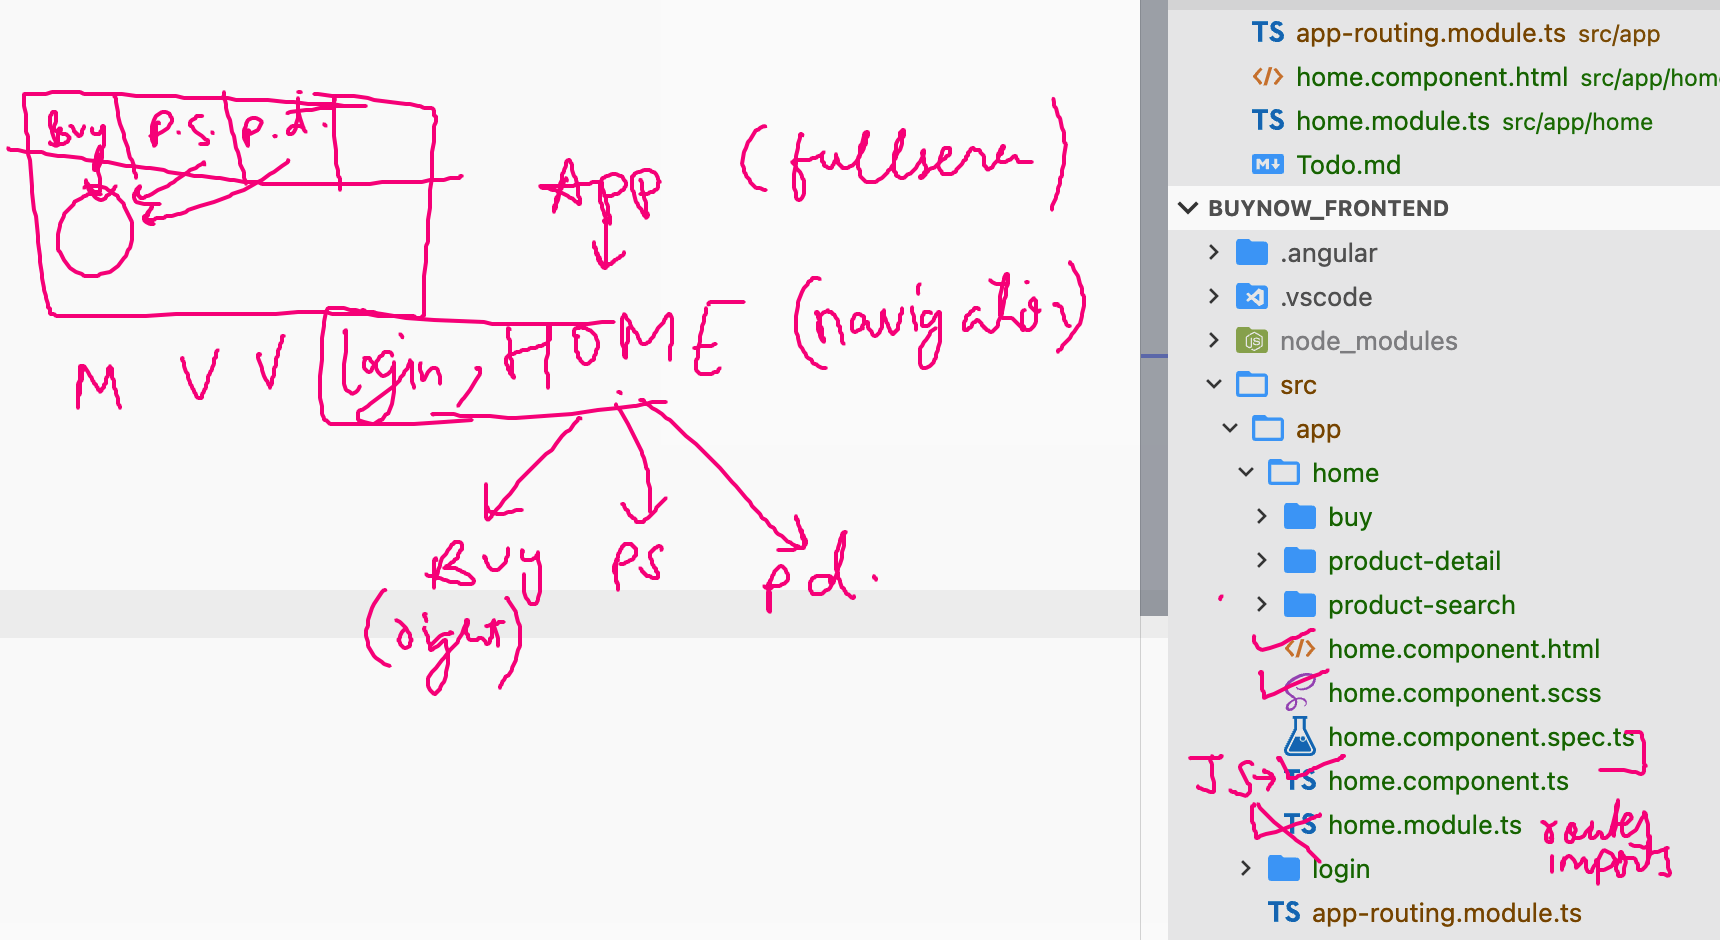 Buy P.S. P.d.
App (fullscreen)
M V V login, HOME (navigation)
Buy PS Pd.
(right)
TS app-routing.module.ts src/app
</> home.component.html src/app/home
TS home.module.ts src/app/home
M↓ Todo.md
BUYNOW_FRONTEND
.angular
.vscode
JS node_modules
src
app
home
buy
product-detail
product-search
</> home.component.html
home.component.scss
home.component.spec.ts
JS→ TS home.component.ts
TS home.module.ts routes
imports
login
TS app-routing.module.ts